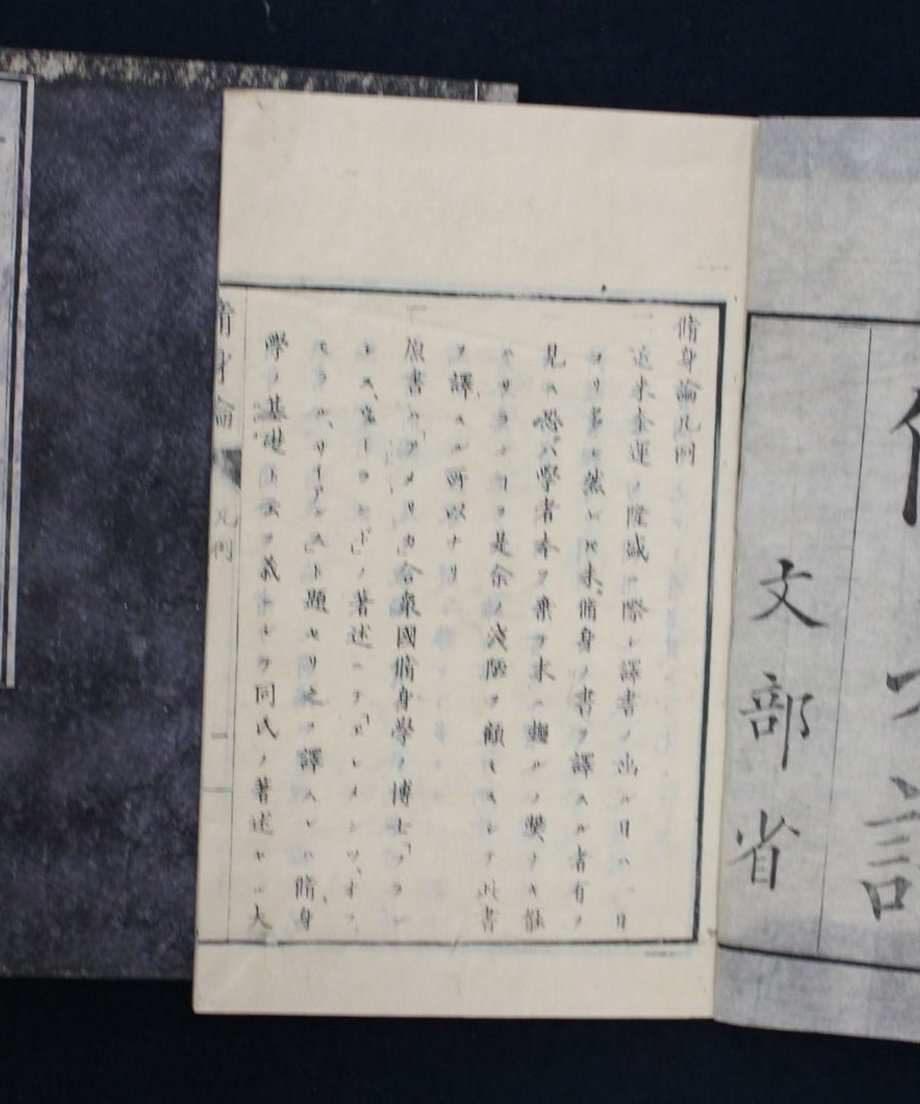 文部省
脩身論凡例
一 近來奎運ノ隆盛ニ際シ譯書ノ出ル日ハ一日
ヨリ多シ然レ𪜈未脩身ノ書ヲ譯スル者有ヲ
見ス恐ハ學者本ヲ棄ヲ末ニ趨ルノ弊ナキ能
ハサランコヲ是余ノ浅陋ヲ顧ミスシテ此書
ヲ譯スル所以ナリ
一 原書ハ「アメリカ」合衆國脩身學ノ博士「フランシス、ウ
ノ著述ニテ「エレメンツ、オフ、
ト題セリ之ヲ譯スレハ脩身
學ノ基礎ト云フ義ニシテ同氏ノ著述セル大
脩身論 凡例 一